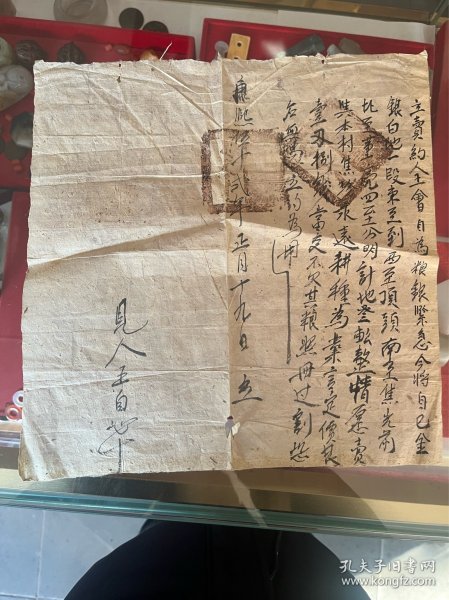 立賣約人王會自為粮銀緊急今將自己金
銀白地一段東至到西至頂頭南至焦先前
北至車㐬四至分明計地叁畝整情愿賣
與本村焦 永遠耕種為業言定價艮
壹刄捌錢當交不欠其粮照冊过割恐
后無憑立約為用
康熙伍十貳年正月十九日 立
見人王自
孔夫子旧书网
www.kongfz.com